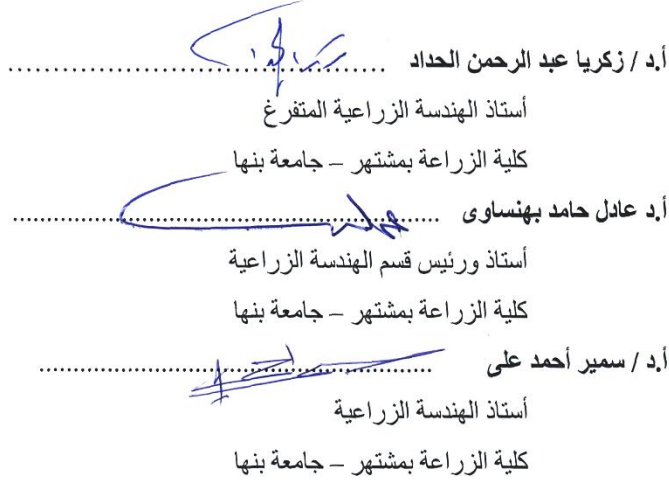 أ.د / زكريا عبد الرحمن الحداد ........................................
أستاذ الهندسة الزراعية المتفرغ
كلية الزراعة بمشتهر – جامعة بنها
أ.د عادل حامد بهنساوى ........................................
أستاذ ورئيس قسم الهندسة الزراعية
كلية الزراعة بمشتهر – جامعة بنها
أ.د / سمير أحمد على ........................................
أستاذ الهندسة الزراعية
كلية الزراعة بمشتهر – جامعة بنها